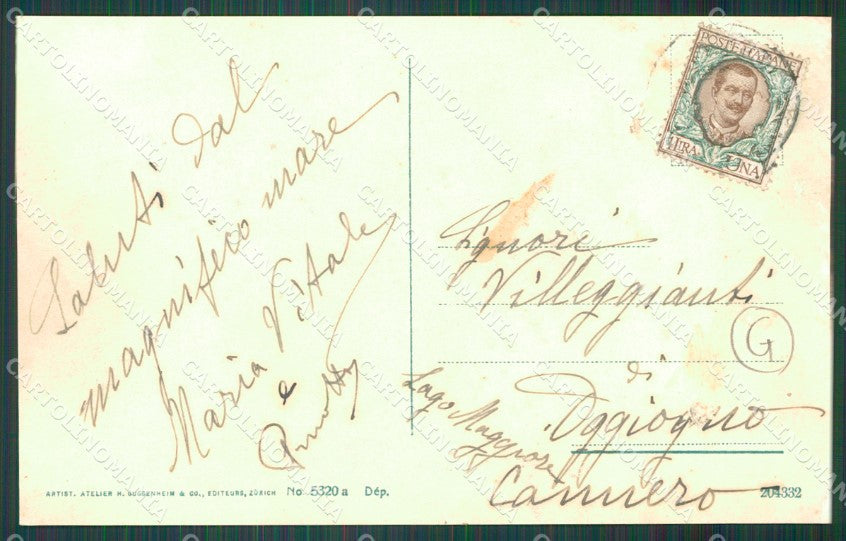 Saluti dal
magnifico mare
Maria Vitale
e
POSTE ITALIANE
1 LIRA UNA
Signori
Villeggianti
G
di
Oggiogno
Lago Maggiore
Cannero
ARTIST. ATELIER H. GUGGENHEIM & CO., EDITEURS, ZÜRICH No 5320 a Dép.
204332
CARTOLINOMANIA